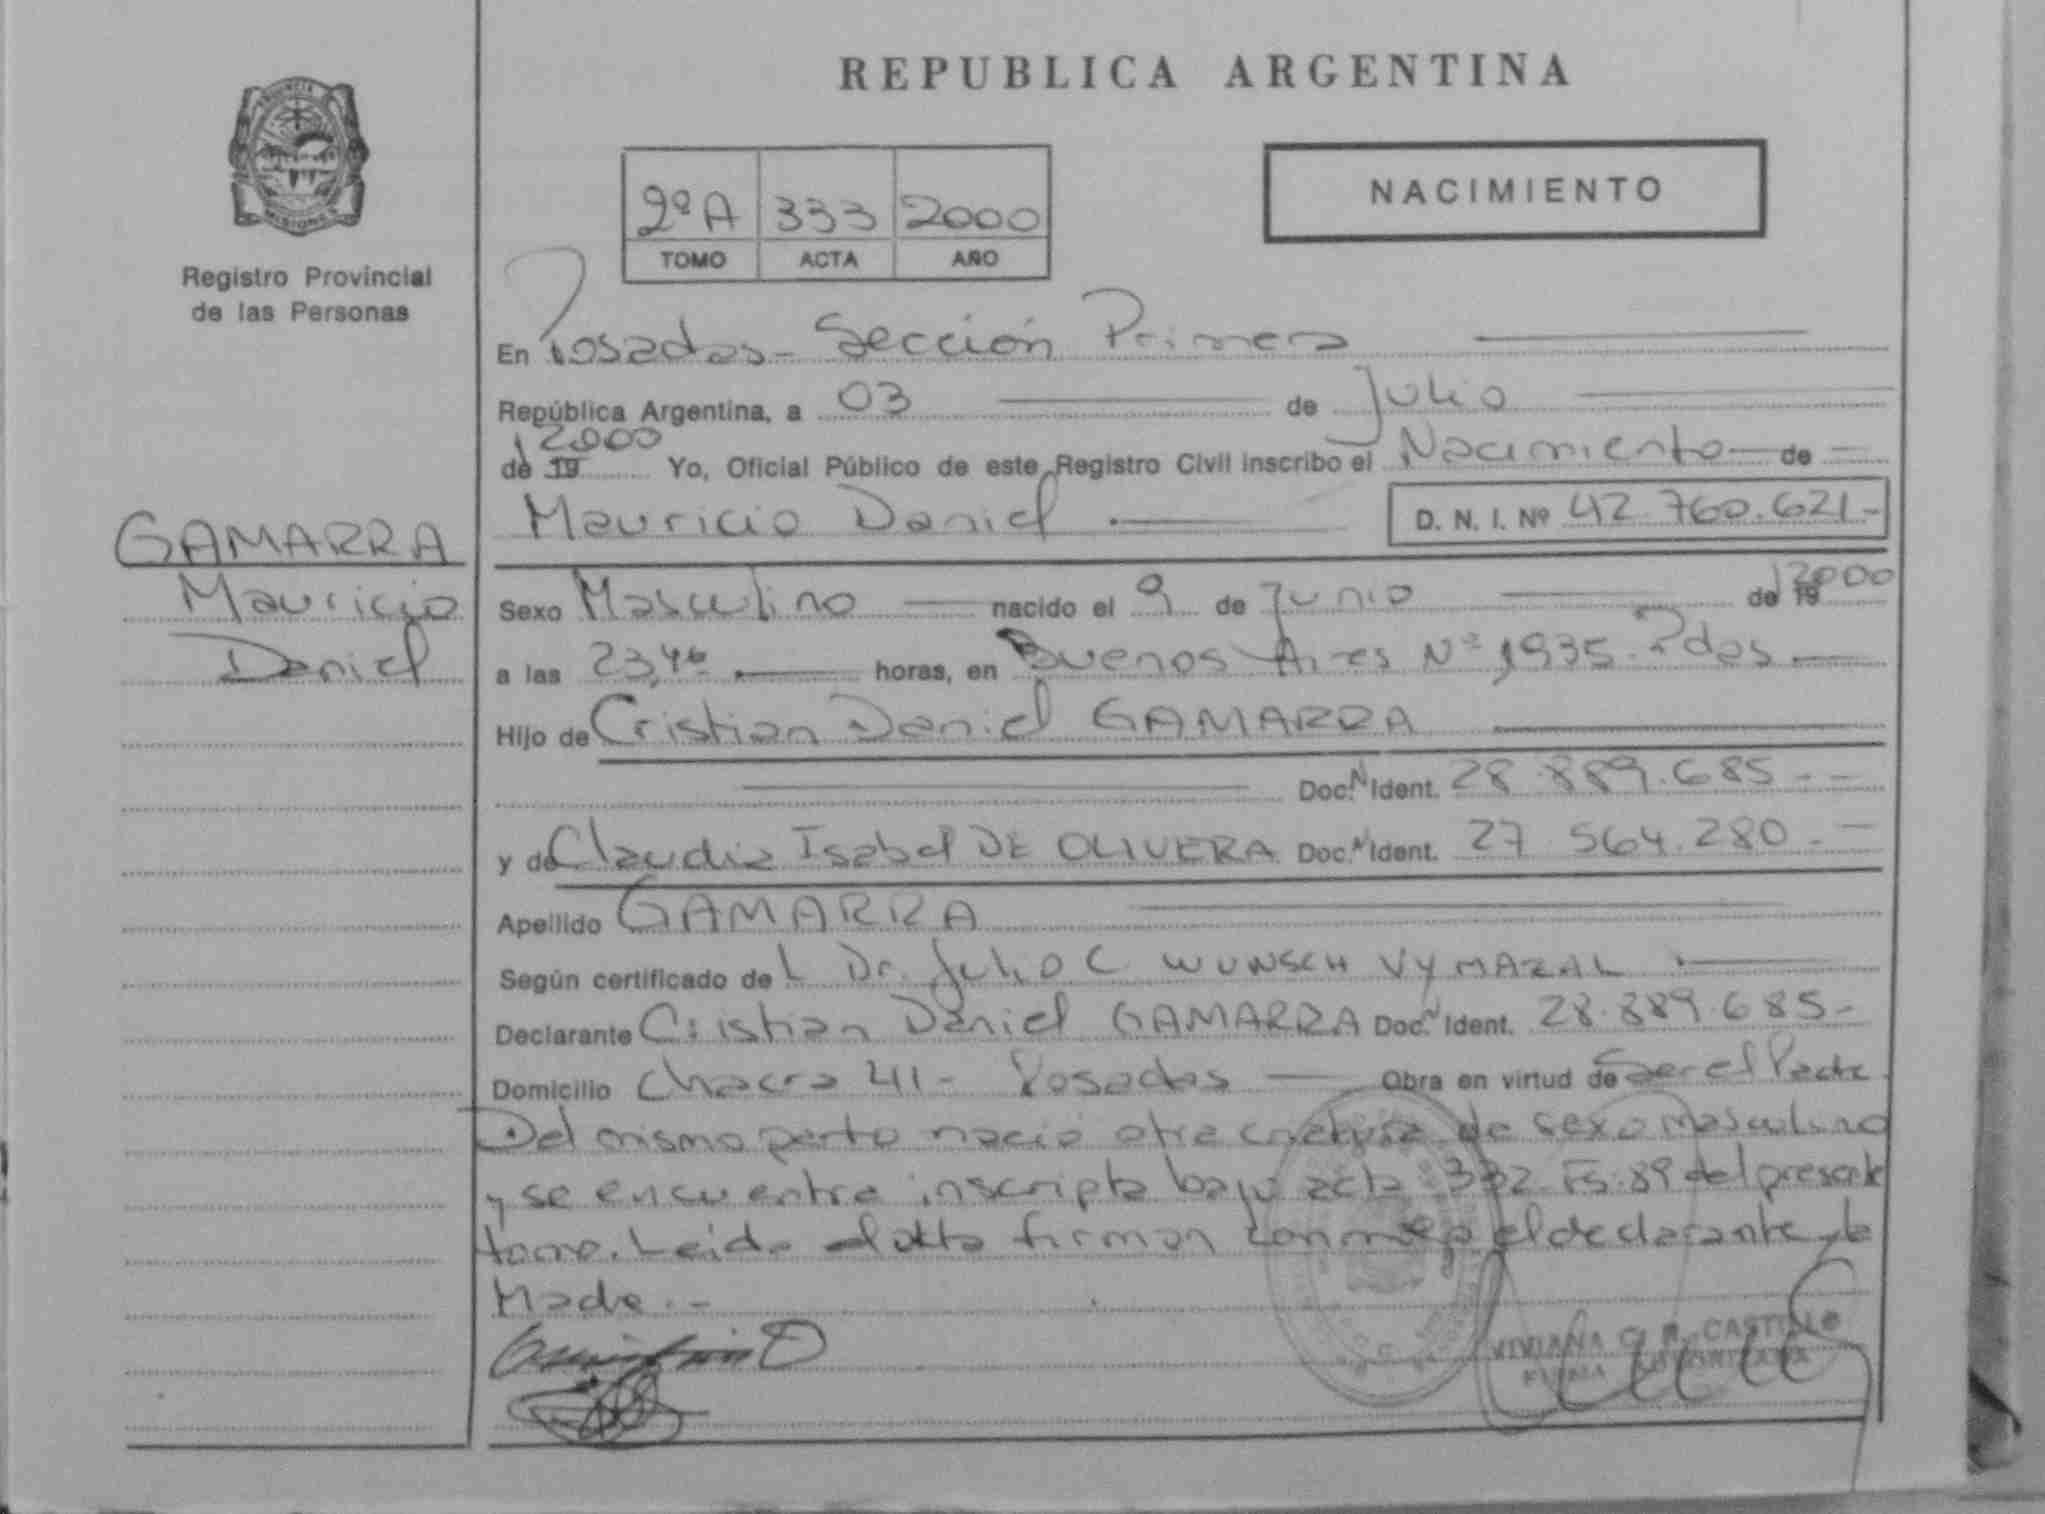 REPUBLICA ARGENTINA
PROVINCIA
MISIONES
Registro Provincial
de las Personas
2º A 333 2000
TOMO ACTA AÑO
NACIMIENTO
En Posadas - Sección Primera
República Argentina, a 03 de Julio
de 19 2000 Yo, Oficial Público de este Registro Civil inscribo el Nacimiento de
Mauricio Daniel D. N. I. Nº 42.760.621-
GAMARRA
Mauricio
Daniel
Sexo Masculino nacido el 9 de Junio de 19 2000
a las 23,46 horas, en Buenos Aires Nº 1935. Pdas
Hijo de Cristian Daniel GAMARRA
Doc. N Ident. 28.889.685 - -
y de Claudia Isabel DE OLIVERA Doc. N Ident. 27.564.280 - -
Apellido GAMARRA
Según certificado del Dr. Julio C WUNSCH VYMAZAL
Declarante Cristian Daniel GAMARRA Doc. N Ident. 28.889.685-
Domicilio Chacra 41 - Posadas Obra en virtud de Ser el Padre
Del mismo parto nacio otra criatura de sexo masculino
y se encuentra inscripta bajo acta 332 Fs. 89 del presente
tomo. Leida el acta firman conmigo el declarante y la
Madre.-
VIVIANA C. R. CASTILLO
FIRMA AUTORIZADA